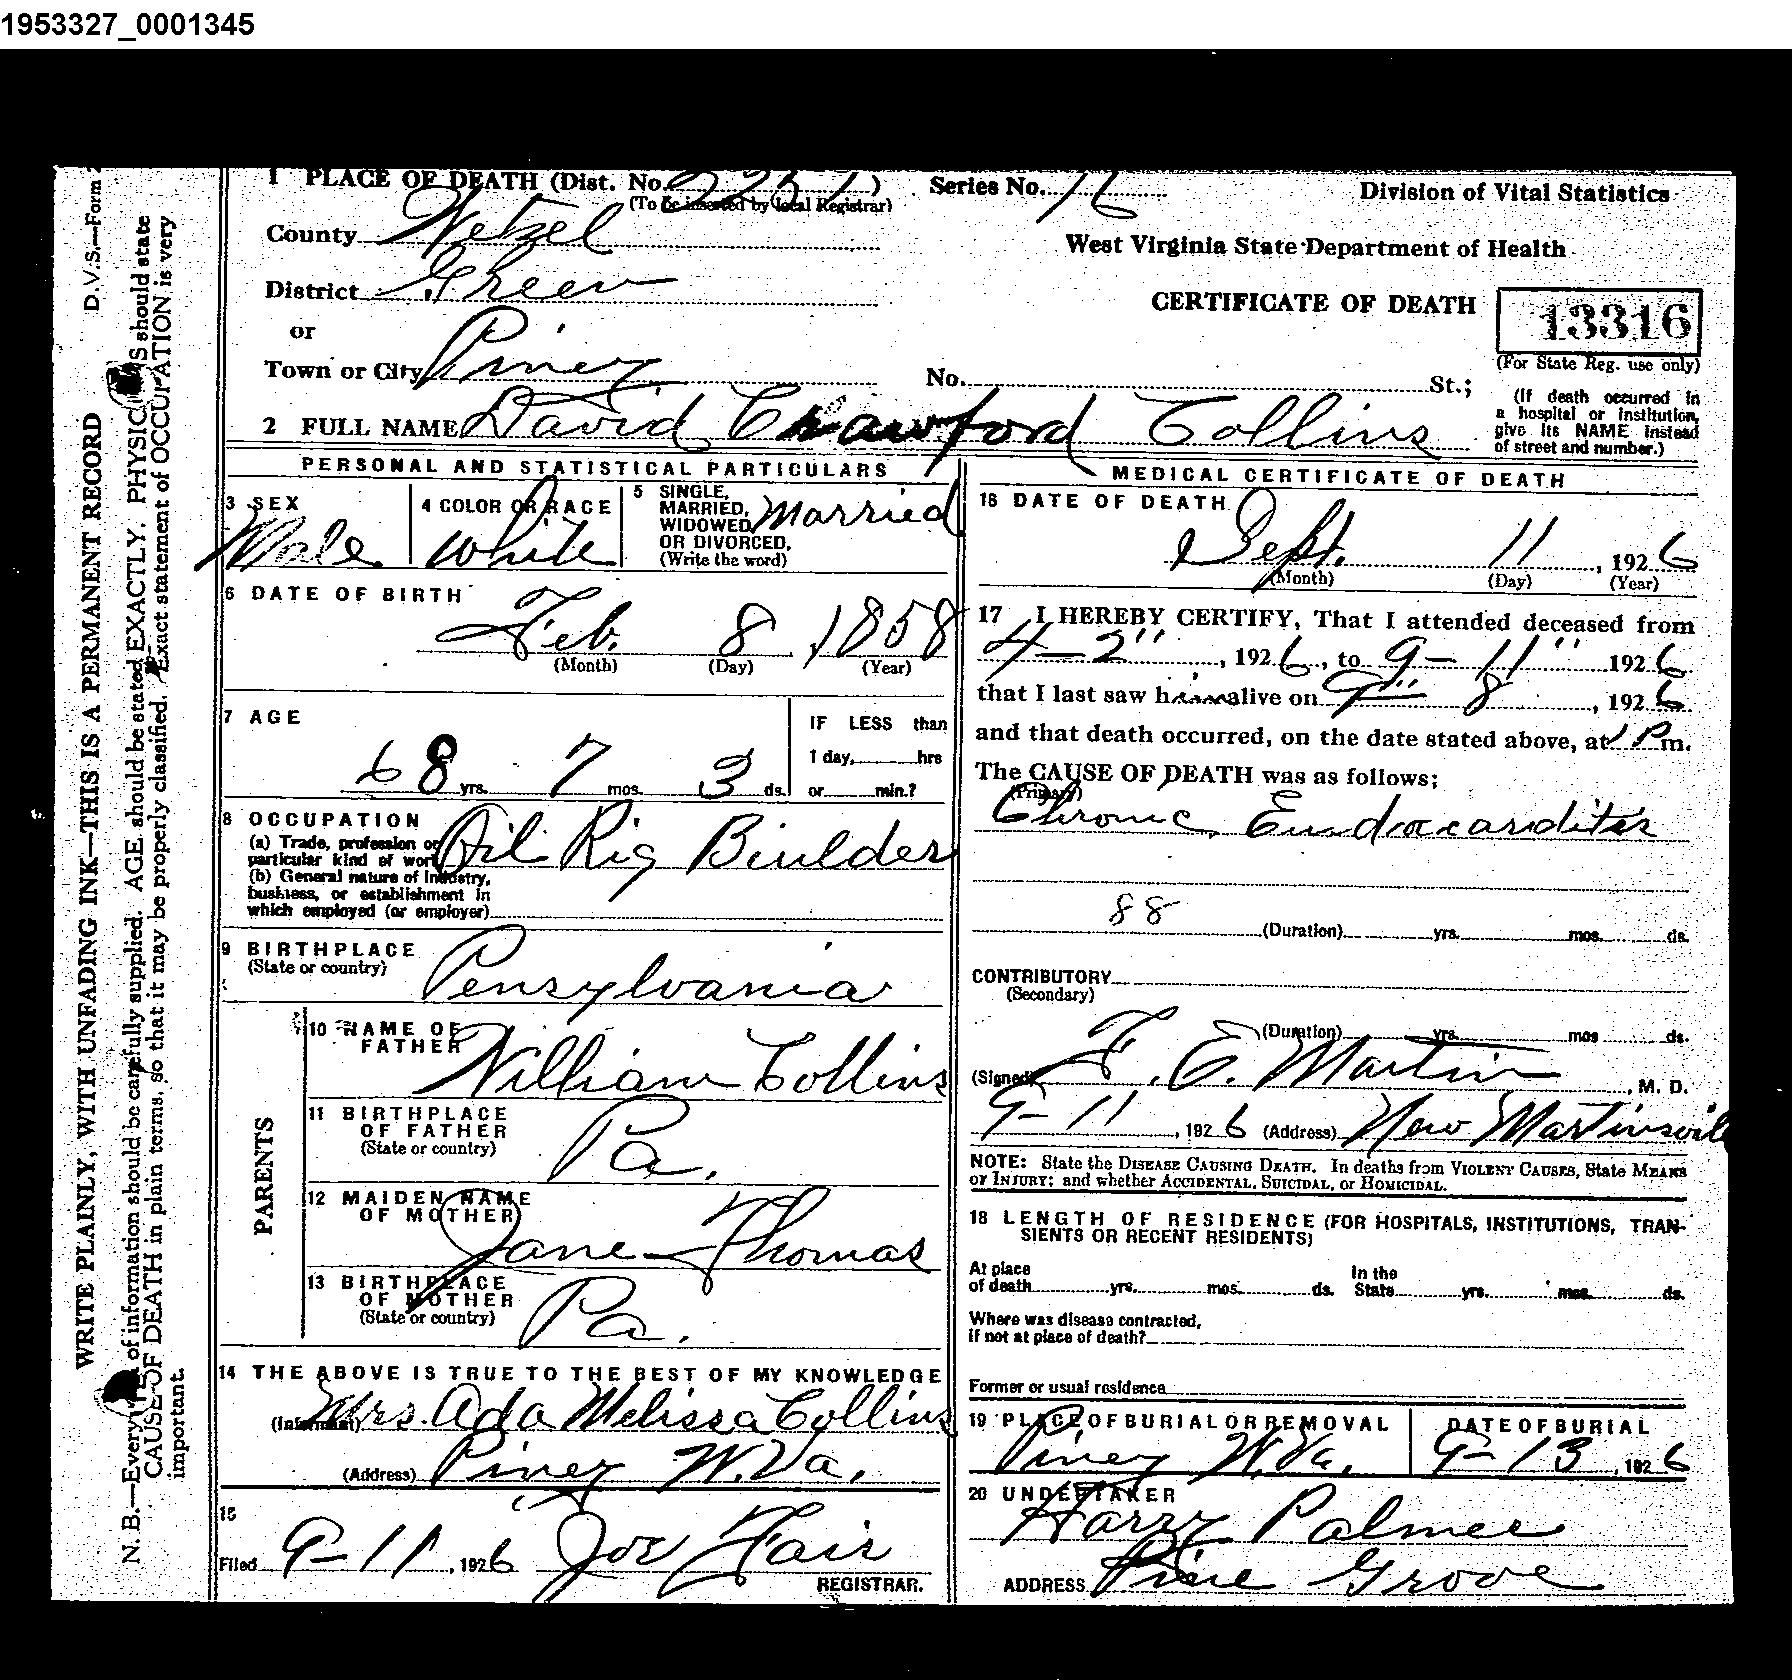 1953327_0001345
D.V.S.—Form
WRITE PLAINLY, WITH UNFADING INK—THIS IS A PERMANENT RECORD
N. B.—Every of information should be carefully supplied. AGE should be stated EXACTLY. PHYSIC S should state
CAUSE OF DEATH in plain terms, so that it may be properly classified. Exact statement of OCCUPATION is very
important.
1 PLACE OF DEATH (Dist. No. )
(To be inserted by local Registrar)
Series No. 16
Division of Vital Statistics
County Wetzel
West Virginia State Department of Health
District Green
CERTIFICATE OF DEATH
13316
(For State Reg. use only)
or
Town or City Piney
No. St.;
(If death occurred in
a hospital or institution,
give its NAME instead
of street and number.)
2 FULL NAME David Crawford Collins
PERSONAL AND STATISTICAL PARTICULARS
3 SEX
Male
4 COLOR OR RACE
White
5 SINGLE,
MARRIED,
WIDOWED
OR DIVORCED,
(Write the word)
Married
6 DATE OF BIRTH
Feb. 8, 1858
(Month) (Day) (Year)
7 AGE
68 yrs. 7 mos. 3 ds.
IF LESS than
1 day, hrs
or min.?
8 OCCUPATION
(a) Trade, profession or
particular kind of work
Oil Rig Biulder
(b) General nature of Industry,
business, or establishment in
which employed (or employer)
9 BIRTHPLACE
(State or country)
Pensylvania
PARENTS
10 NAME OF
FATHER
William Collins
11 BIRTHPLACE
OF FATHER
(State or country)
Pa.
12 MAIDEN NAME
OF MOTHER
Jane Thomas
13 BIRTHPLACE
OF MOTHER
(State or country)
Pa.
14 THE ABOVE IS TRUE TO THE BEST OF MY KNOWLEDGE
(Informant) Mrs. Ada Melissa Collins
(Address) Piney W. Va.
15
Filed 9-11, 1926 Joe Fair
REGISTRAR.
MEDICAL CERTIFICATE OF DEATH
16 DATE OF DEATH
Sept. 11, 1926
(Month) (Day) (Year)
17 I HEREBY CERTIFY, That I attended deceased from
4-2", 1926, to 9-11" 1926
that I last saw him alive on 9" 8, 1926
and that death occurred, on the date stated above, at 1 P m.
The CAUSE OF DEATH was as follows;
(Primary)
Chronic Endocarditis
88
(Duration) yrs. mos. ds.
CONTRIBUTORY
(Secondary)
(Duration) yrs. mos ds.
(Signed) F. E. Martin, M. D.
9-11, 1926 (Address) New Martinsville
NOTE: State the DISEASE CAUSING DEATH. In deaths from VIOLENT CAUSES, State MEANS
OF INJURY; and whether ACCIDENTAL, SUICIDAL, or HOMICIDAL.
18 LENGTH OF RESIDENCE (FOR HOSPITALS, INSTITUTIONS, TRAN-
SIENTS OR RECENT RESIDENTS)
At place
of death yrs. mos. ds.
In the
State yrs. mos. ds.
Where was disease contracted,
if not at place of death?
Former or usual residence
19 PLACE OF BURIAL OR REMOVAL
Piney W. Va.
DATE OF BURIAL
9-13, 1926
20 UNDERTAKER
Harry Palmer
ADDRESS Pine Grove